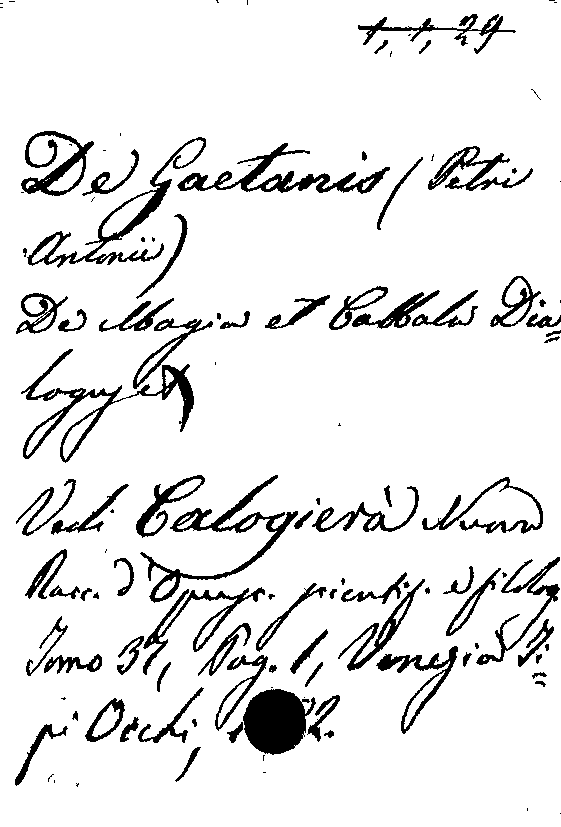 1, 1, 29
De Gaetanis (Petri
Antonii)
De Magia et Cabbala Dia=
logus et
Vedi Calogierà Nuova
Racc. d'Opusc. scientif. e filolog.
Tomo 37, Pag. 1, Venezia Ti=
pi Occhi, 2.